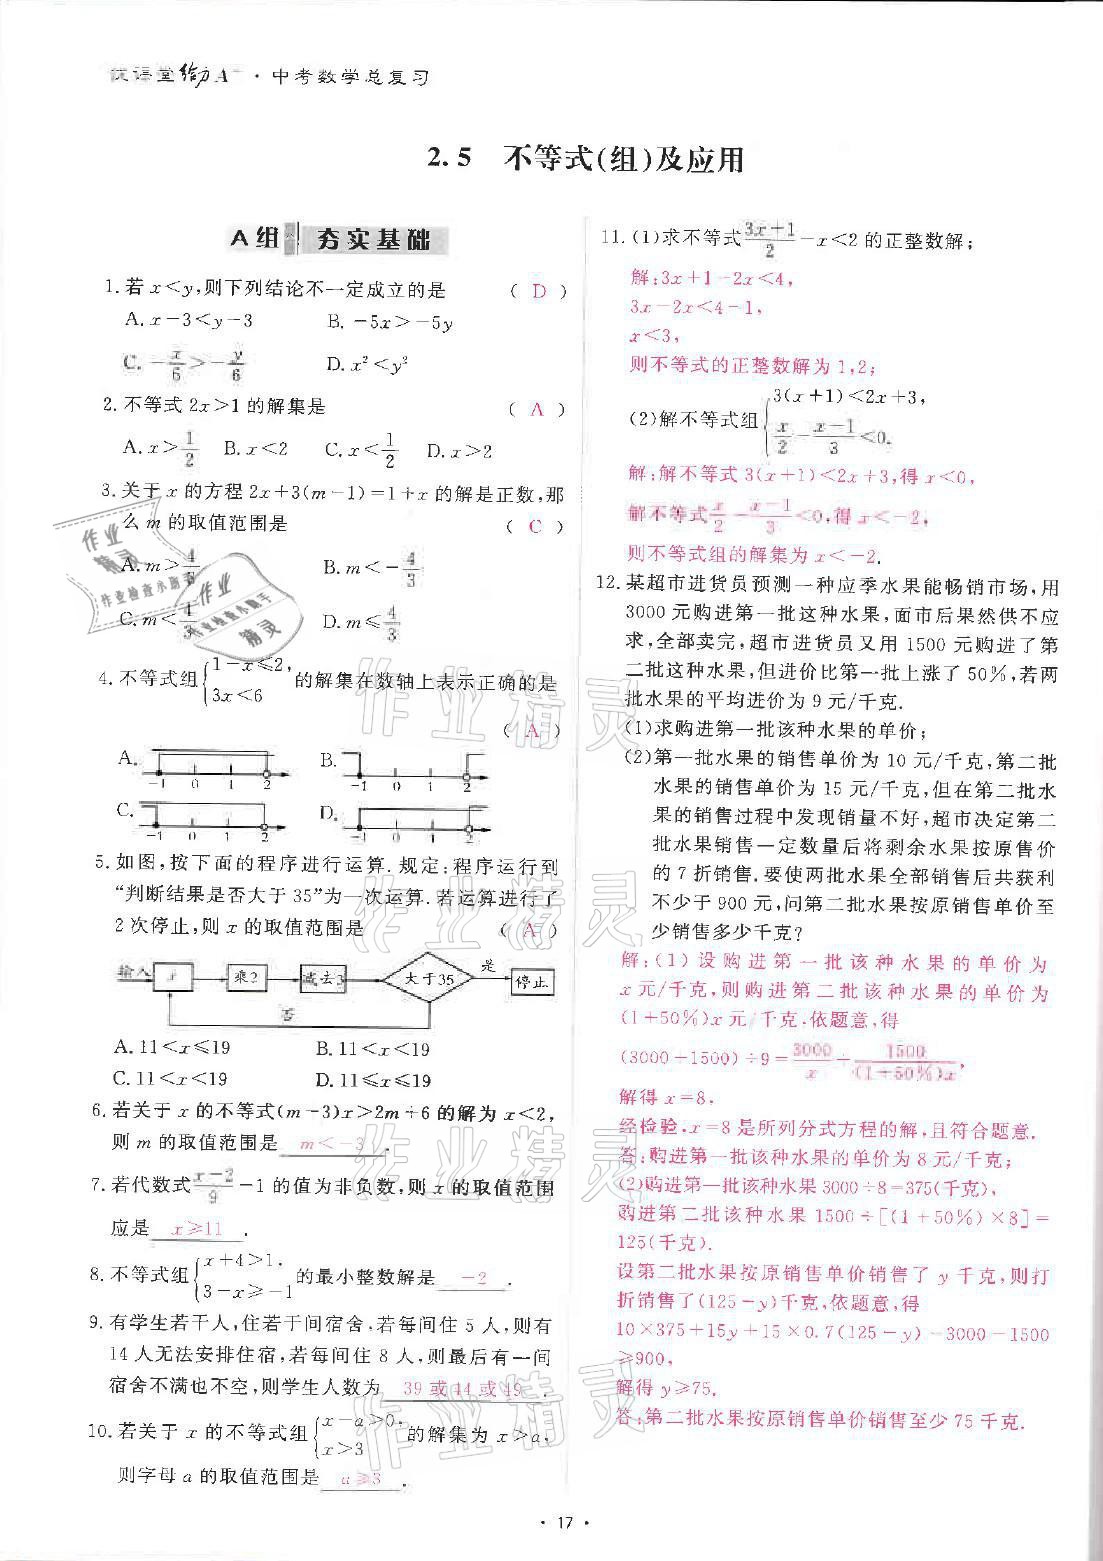 优课堂给力A⁺·中考数学总复习
2.5 不等式(组)及应用
A组 夯实基础
1. 若 x<y,则下列结论不一定成立的是 ( D )
A. x-3<y-3 B. -5x>-5y
C. -x/6>-y/6 D. x²<y²
2. 不等式 2x>1 的解集是 ( A )
A. x>1/2 B. x<2 C. x<1/2 D. x>2
3. 关于 x 的方程 2x+3(m-1)=1+x 的解是正数,那
么 m 的取值范围是 ( C )
A. m>4/3 B. m<-4/3
C. m<4/3 D. m≤4/3
4. 不等式组{1-x≤2, 3x<6 的解集在数轴上表示正确的是
( A )
A. -1 0 1 2 B. -1 0 1 2
C. -1 0 1 2 D. -1 0 1 2
5. 如图,按下面的程序进行运算. 规定:程序运行到
“判断结果是否大于 35”为一次运算. 若运算进行了
2 次停止,则 x 的取值范围是 ( A )
输入 x 乘2 减去3 大于35 是 停止
否
A. 11<x≤19 B. 11<x<19
C. 11<x<19 D. 11≤x≤19
6. 若关于 x 的不等式(m-3)x>2m÷6 的解为 x<2,
则 m 的取值范围是 m<-3 .
7. 若代数式(x-2)/9-1 的值为非负数,则 x 的取值范围
应是 x≥11 .
8. 不等式组{x+4>1, 3-x≥-1 的最小整数解是 -2 .
9. 有学生若干人,住若干间宿舍,若每间住 5 人,则有
14 人无法安排住宿,若每间住 8 人,则最后有一间
宿舍不满也不空,则学生人数为 39 或 44 或 49 .
10. 若关于 x 的不等式组{x-a>0, x>3 的解集为 x>a,
则字母 a 的取值范围是 a≥3 .
11. (1)求不等式(3x+1)/2-x<2 的正整数解;
解:3x+1-2x<4,
3x-2x<4-1,
x<3,
则不等式的正整数解为 1,2;
(2)解不等式组{3(x+1)<2x+3, x/2-(x-1)/3<0.
解:解不等式 3(x+1)<2x+3,得 x<0,
解不等式 x/2-(x-1)/3<0,得 x<-2,
则不等式组的解集为 x<-2.
12. 某超市进货员预测一种应季水果能畅销市场,用
3000 元购进第一批这种水果,面市后果然供不应
求,全部卖完,超市进货员又用 1500 元购进了第
二批这种水果,但进价比第一批上涨了 50%,若两
批水果的平均进价为 9 元/千克.
(1)求购进第一批该种水果的单价;
(2)第一批水果的销售单价为 10 元/千克,第二批
水果的销售单价为 15 元/千克,但在第二批水
果的销售过程中发现销量不好,超市决定第二
批水果销售一定数量后将剩余水果按原售价
的 7 折销售. 要使两批水果全部销售后共获利
不少于 900 元,问第二批水果按原销售单价至
少销售多少千克?
解:(1)设购进第一批该种水果的单价为
x 元/千克,则购进第二批该种水果的单价为
(1+50%)x 元/千克.依题意,得
(3000+1500)÷9=3000/x+1500/(1+50%)x,
解得 x=8,
经检验,x=8 是所列分式方程的解,且符合题意.
答:购进第一批该种水果的单价为 8 元/千克;
(2)购进第一批该种水果3000÷8=375(千克),
购进第二批该种水果 1500÷[(1+50%)×8]=
125(千克).
设第二批水果按原销售单价销售了 y 千克,则打
折销售了(125-y)千克,依题意,得
10×375+15y+15×0.7(125-y)-3000-1500
≥900,
解得 y≥75.
答:第二批水果按原销售单价销售至少 75 千克.
· 17 ·
作业精灵
作业检查小助手
作业精灵
作业检查小助手
作业精灵
作业精灵
作业精灵
作业精灵